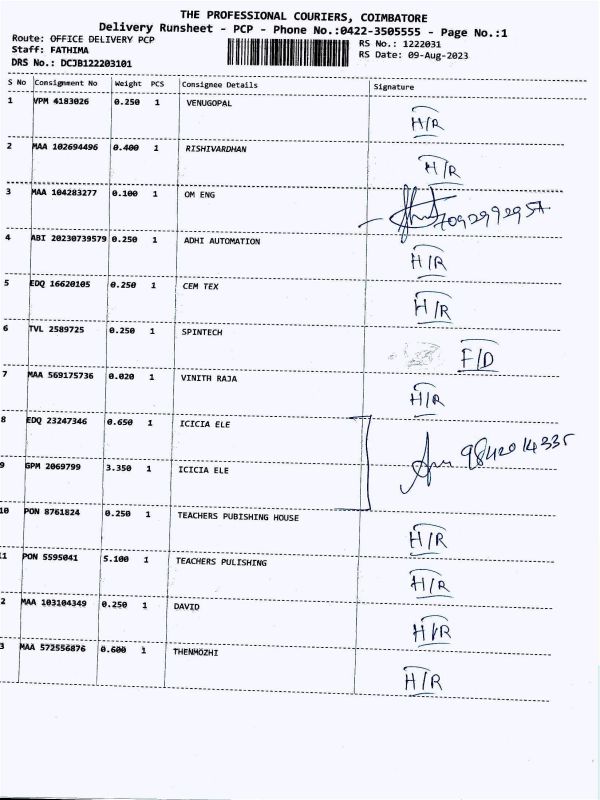 THE PROFESSIONAL COURIERS, COIMBATORE
Delivery Runsheet - PCP - Phone No.:0422-3505555 - Page No.:1
Route: OFFICE DELIVERY PCP RS No.: 1222031
Staff: FATHIMA RS Date: 09-Aug-2023
DRS No.: DCJB122203101
S No Consignment No Weight PCS Consignee Details Signature
1 VPM 4183026 0.250 1 VENUGOPAL H/R
2 MAA 102694496 0.400 1 RISHIVARDHAN H/R
3 MAA 104283277 0.100 1 OM ENG 7092992957
4 ABI 20230739579 0.250 1 ADHI AUTOMATION H/R
5 EDQ 16620105 0.250 1 CEM TEX H/R
6 TVL 2589725 0.250 1 SPINTECH F/D
7 MAA 569175736 0.020 1 VINITH RAJA H/R
8 EDQ 23247346 0.650 1 ICICIA ELE 9842014335
9 GPM 2069799 3.350 1 ICICIA ELE
10 PON 8761824 0.250 1 TEACHERS PUBISHING HOUSE H/R
11 PON 5595041 5.100 1 TEACHERS PULISHING H/R
2 MAA 103104349 0.250 1 DAVID H/R
3 MAA 572556876 0.600 1 THENMOZHI H/R